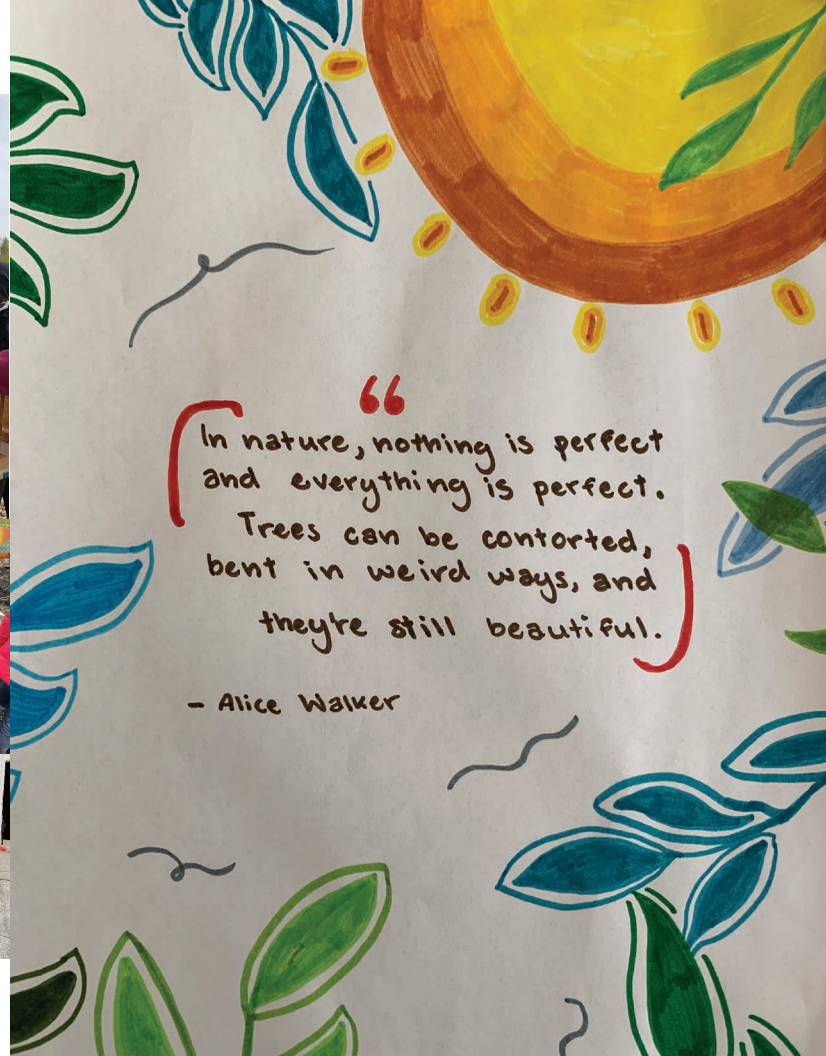 “
In nature, nothing is perfect
and everything is perfect.
Trees can be contorted,
bent in weird ways, and
they're still beautiful.
- Alice Walker